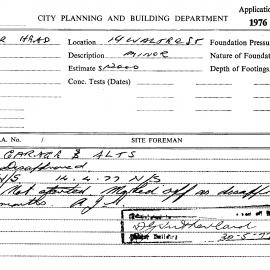 CITY PLANNING AND BUILDING DEPARTMENT
Application
1976
HEAD
Location 14 WALTER ST
Foundation Pressu
Description MINOR
Nature of Foundat
Estimate $ 2000
Depth of Footings
Conc. Tests (Dates)
.A. No.
SITE FOREMAN
GARAGE & ALTS
Disapproved
N/S 14.4.77 N/S
Not started Marked off as disapp
months A.J.
Building
30.5.77